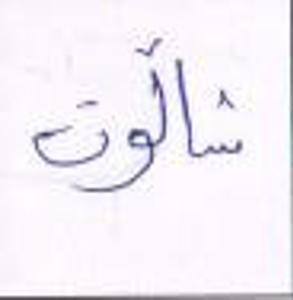 شاڵوت